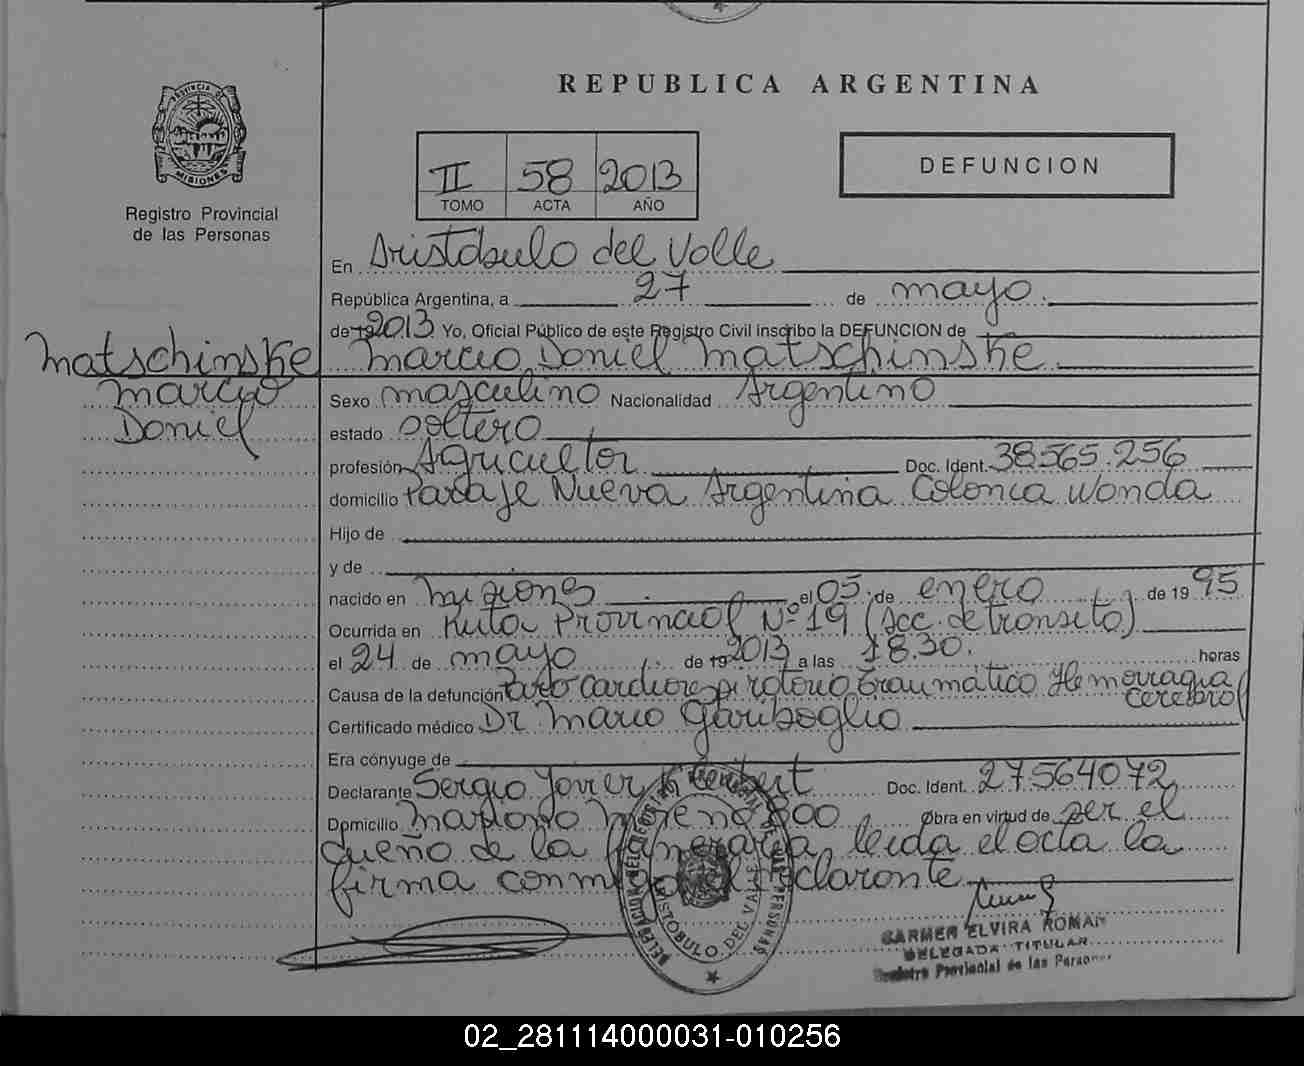 REPUBLICA ARGENTINA
PROVINCIA DE
MISIONES
Registro Provincial
de las Personas
II 58 2013
TOMO ACTA AÑO
DEFUNCION
En Aristóbulo del Valle
República Argentina, a 27 de mayo
de 19 2013 Yo, Oficial Público de este Registro Civil inscribo la DEFUNCION de
Matschinske Marcio Daniel Matschinske
Marcio Sexo masculino Nacionalidad Argentino
Daniel estado Soltero
profesión Agricultor Doc. Ident. 38.565.256
domicilio Paraje Nueva Argentina Colonia Wanda
Hijo de
y de
nacido en Misiones el 05 de enero de 19 95
Ocurrida en Ruta Provincial Nº 19 (Acc. de transito)
el 24 de mayo de 19 2013 a las 18.30. horas
Causa de la defunción Paro cardiorespiratorio traumático Hemorragia
Cerebral
Certificado médico Dr. Mario Gariboglio
Era cónyuge de
Declarante Sergio Javier Kleibert Doc. Ident. 27564072
Domicilio Mariano Moreno 800 Obra en virtud de ser el
dueño de la funeraria, leida el acta la
firma conmigo el declarante
DELEGACION DEL REGISTRO PROVINCIAL DE LAS PERSONAS
ARISTOBULO DEL VALLE
CARMEN ELVIRA ROMAN
DELEGADA TITULAR
Registro Provincial de las Personas
02_281114000031-010256